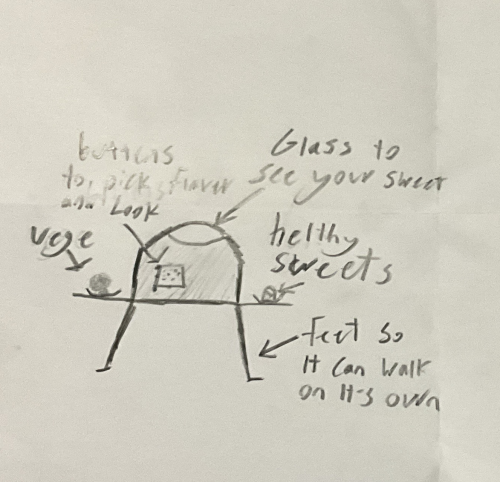 buttons
to pick flavor
and Look
Glass to
see your sweet
vege
helthy
sweets
feet so
It can walk
on It's own